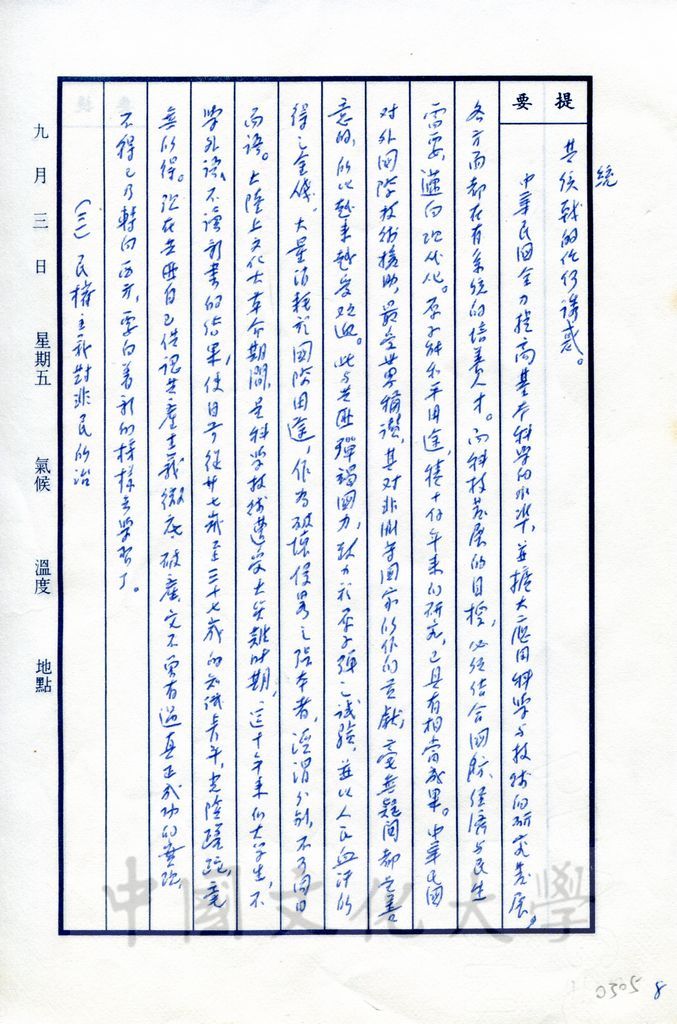 提要
統
其統戰的作何誘惑。
中華民國全力提高基本科學的水準，並擴大應用科學与技術的研究發展，
各方面都在有系統的培養人才。而科技發展的目標，必須結合國防、經濟与民生
需要，邁向現代化。原子能和平用途，積十仔年來的研究，已具有相當成果。中華民國
對外國際技術援助，最受世界稱讚，其對非洲等國家所作的貢獻，毫無疑問都是善
意的，所以越來越受欢迎。此与共匪殫竭國力，致力於原子彈之試驗，並以人民血汗所
得之金錢，大量消耗於國際用途，作為破壞侵畧之張本者，涇渭分别，不可同日
而語。大陸上文化大革命期間，是科學技術遭受大災難時期，這十年來的大學生，不
學外語，不讀新書的結果，使目前從廿七歲至三十七歲的知識青年，光陰蹉跎，毫
無所得。現在共匪自己供認共產主義徹底破產，完不曾有過真正成功的實現，
不得已乃轉向西方，要向着新的榜樣去學習了。
(三) 民權主義對非民的治
九月三日 星期五 氣候 溫度 地點
中國文化大學
0305 8